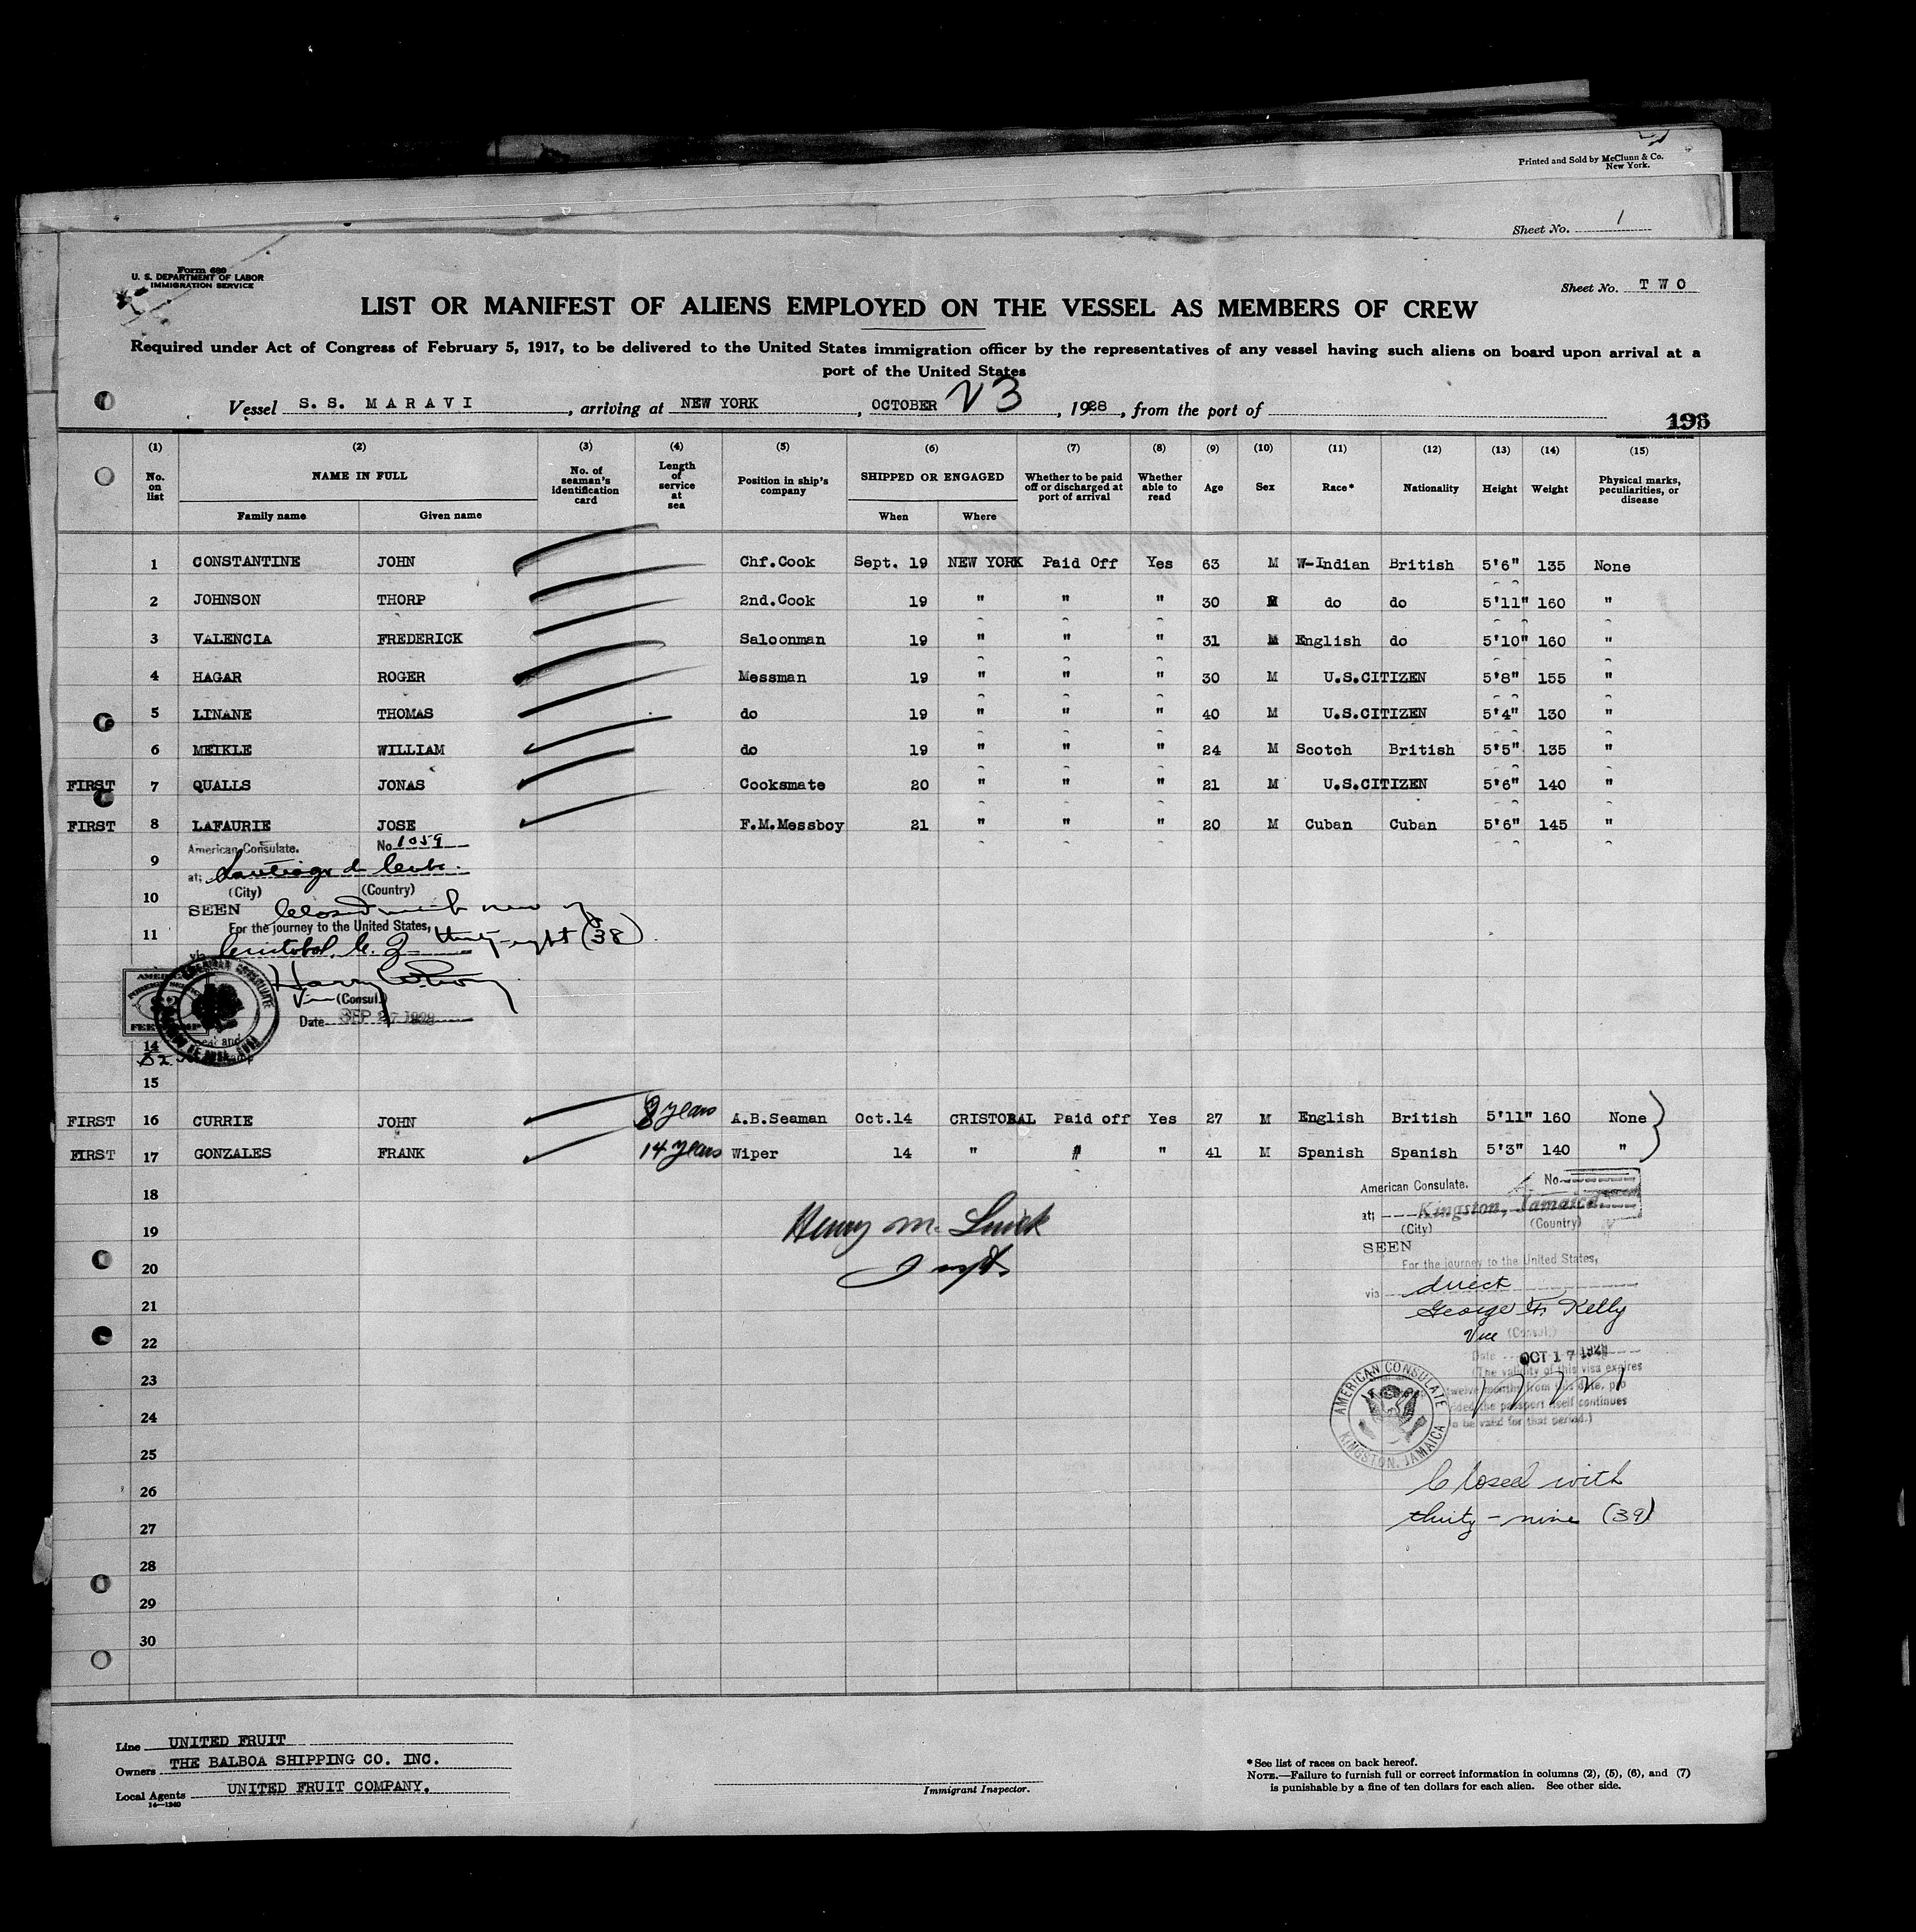 Printed and Sold by McClunn & Co.
New York.
Sheet No. 1
Form 680
U. S. DEPARTMENT OF LABOR
IMMIGRATION SERVICE
Sheet No. TWO
LIST OR MANIFEST OF ALIENS EMPLOYED ON THE VESSEL AS MEMBERS OF CREW
Required under Act of Congress of February 5, 1917, to be delivered to the United States immigration officer by the representatives of any vessel having such aliens on board upon arrival at a
port of the United States
Vessel S. S. MARAVI, arriving at NEW YORK, OCTOBER 23, 1928, from the port of
(1) (2) (3) (4) (5) (6) (7) (8) (9) (10) (11) (12) (13) (14) (15)
No. on list NAME IN FULL No. of seaman's identification card Length of service at sea Position in ship's company SHIPPED OR ENGAGED Whether to be paid off or discharged at port of arrival Whether able to read Age Sex Race* Nationality Height Weight Physical marks, peculiarities, or disease
Family name Given name When Where
1 CONSTANTINE JOHN Chf.Cook Sept. 19 NEW YORK Paid Off Yes 63 M W-Indian British 5'6" 135 None
2 JOHNSON THORP 2nd.Cook 19 " " " 30 M do do 5'11" 160 "
3 VALENCIA FREDERICK Saloonman 19 " " " 31 M English do 5'10" 160 "
4 HAGAR ROGER Messman 19 " " " 30 M U.S.CITIZEN 5'8" 155 "
5 LINANE THOMAS do 19 " " " 40 M U.S.CITIZEN 5'4" 130 "
6 MEIKLE WILLIAM do 19 " " " 24 M Scotch British 5'5" 135 "
FIRST 7 QUALLS JONAS Cooksmate 20 " " " 21 M U.S.CITIZEN 5'6" 140 "
FIRST 8 LAFAURIE JOSE F.M.Messboy 21 " " " 20 M Cuban Cuban 5'6" 145 "
American Consulate. No 1059
9
at; Santiago de Cuba.
(City) (Country)
10
SEEN Closed with
11
For the journey to the United States, thirty-eight (38).
via Cristobal, C. Z.
Harry
Vice (Consul)
Date SEP 27 1928
14
15
FIRST 16 CURRIE JOHN years A.B.Seaman Oct.14 CRISTOBAL Paid off Yes 27 M English British 5'11" 160 None
FIRST 17 GONZALES FRANK 14 years Wiper 14 " " " 41 M Spanish Spanish 5'3" 140 "
18
American Consulate. No
at; Kingston, Jamaica
(City) (Country)
19
Henry M.
SEEN
20
For the journey to the United States,
21
via direct
George F. Kelly
22
Vice (Consul)
Date OCT 17 1928
(The validity of this visa expires
23
twelve months from this date, pro
vided the passport itself continues
24
to be valid for that period.)
AMERICAN CONSULATE
KINGSTON, JAMAICA
25
26
Closed with
27
thirty-nine (39)
28
29
30
Line UNITED FRUIT
Owners THE BALBOA SHIPPING CO. INC.
Local Agents UNITED FRUIT COMPANY.
14—1240
Immigrant Inspector.
*See list of races on back hereof.
NOTE.—Failure to furnish full or correct information in columns (2), (5), (6), and (7)
is punishable by a fine of ten dollars for each alien. See other side.